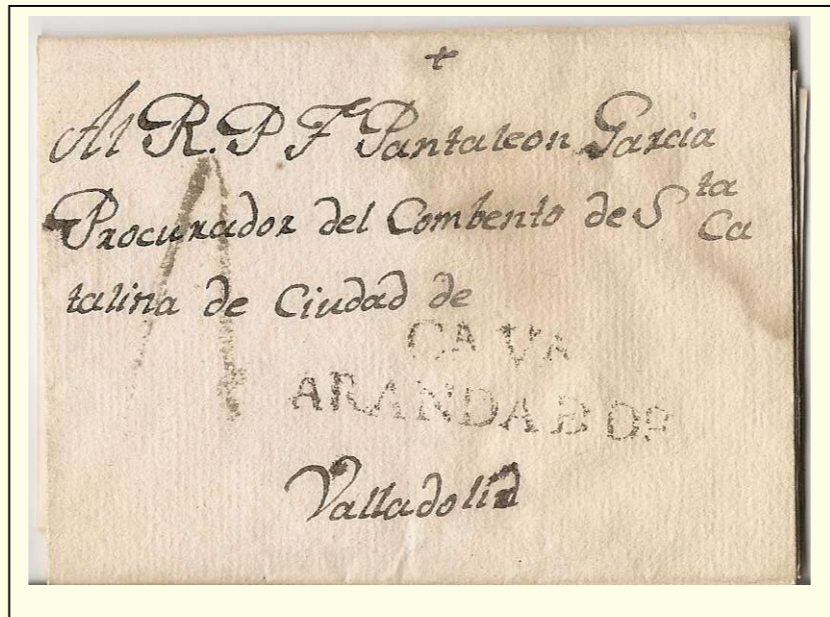 +
Al R. P. Fr Pantaleon Garcia
Procurador del Combento de Sta Ca
talina de Ciudad de
CA VA
ARANDA B DO
Valladolid